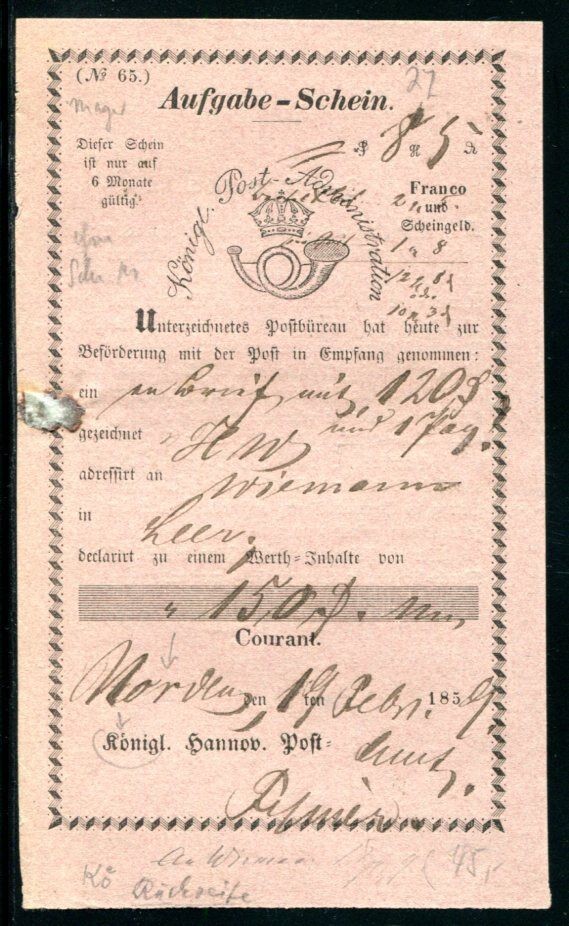 (№ 65.)
27
Aufgabe-Schein.
Dieſer Schein
iſt nur auf
6 Monate
gültig.
8 5
Königl. Post-Administration
Franco
und
Scheingeld.
1 " 8
Unterzeichnetes Poſtbüreau hat heute zur
Beförderung mit der Poſt in Empfang genommen:
ein Brief mit 120
und 1 Pag.
gezeichnet H W
adreſſirt an Wiemann
in Leer.
declarirt zu einem Werth-Inhalte von
" 150
Courant.
Norden, den 19ten Febr. 1859.
Königl. Hannov. Poſt-Amt.
45,-
Kö Rückseite